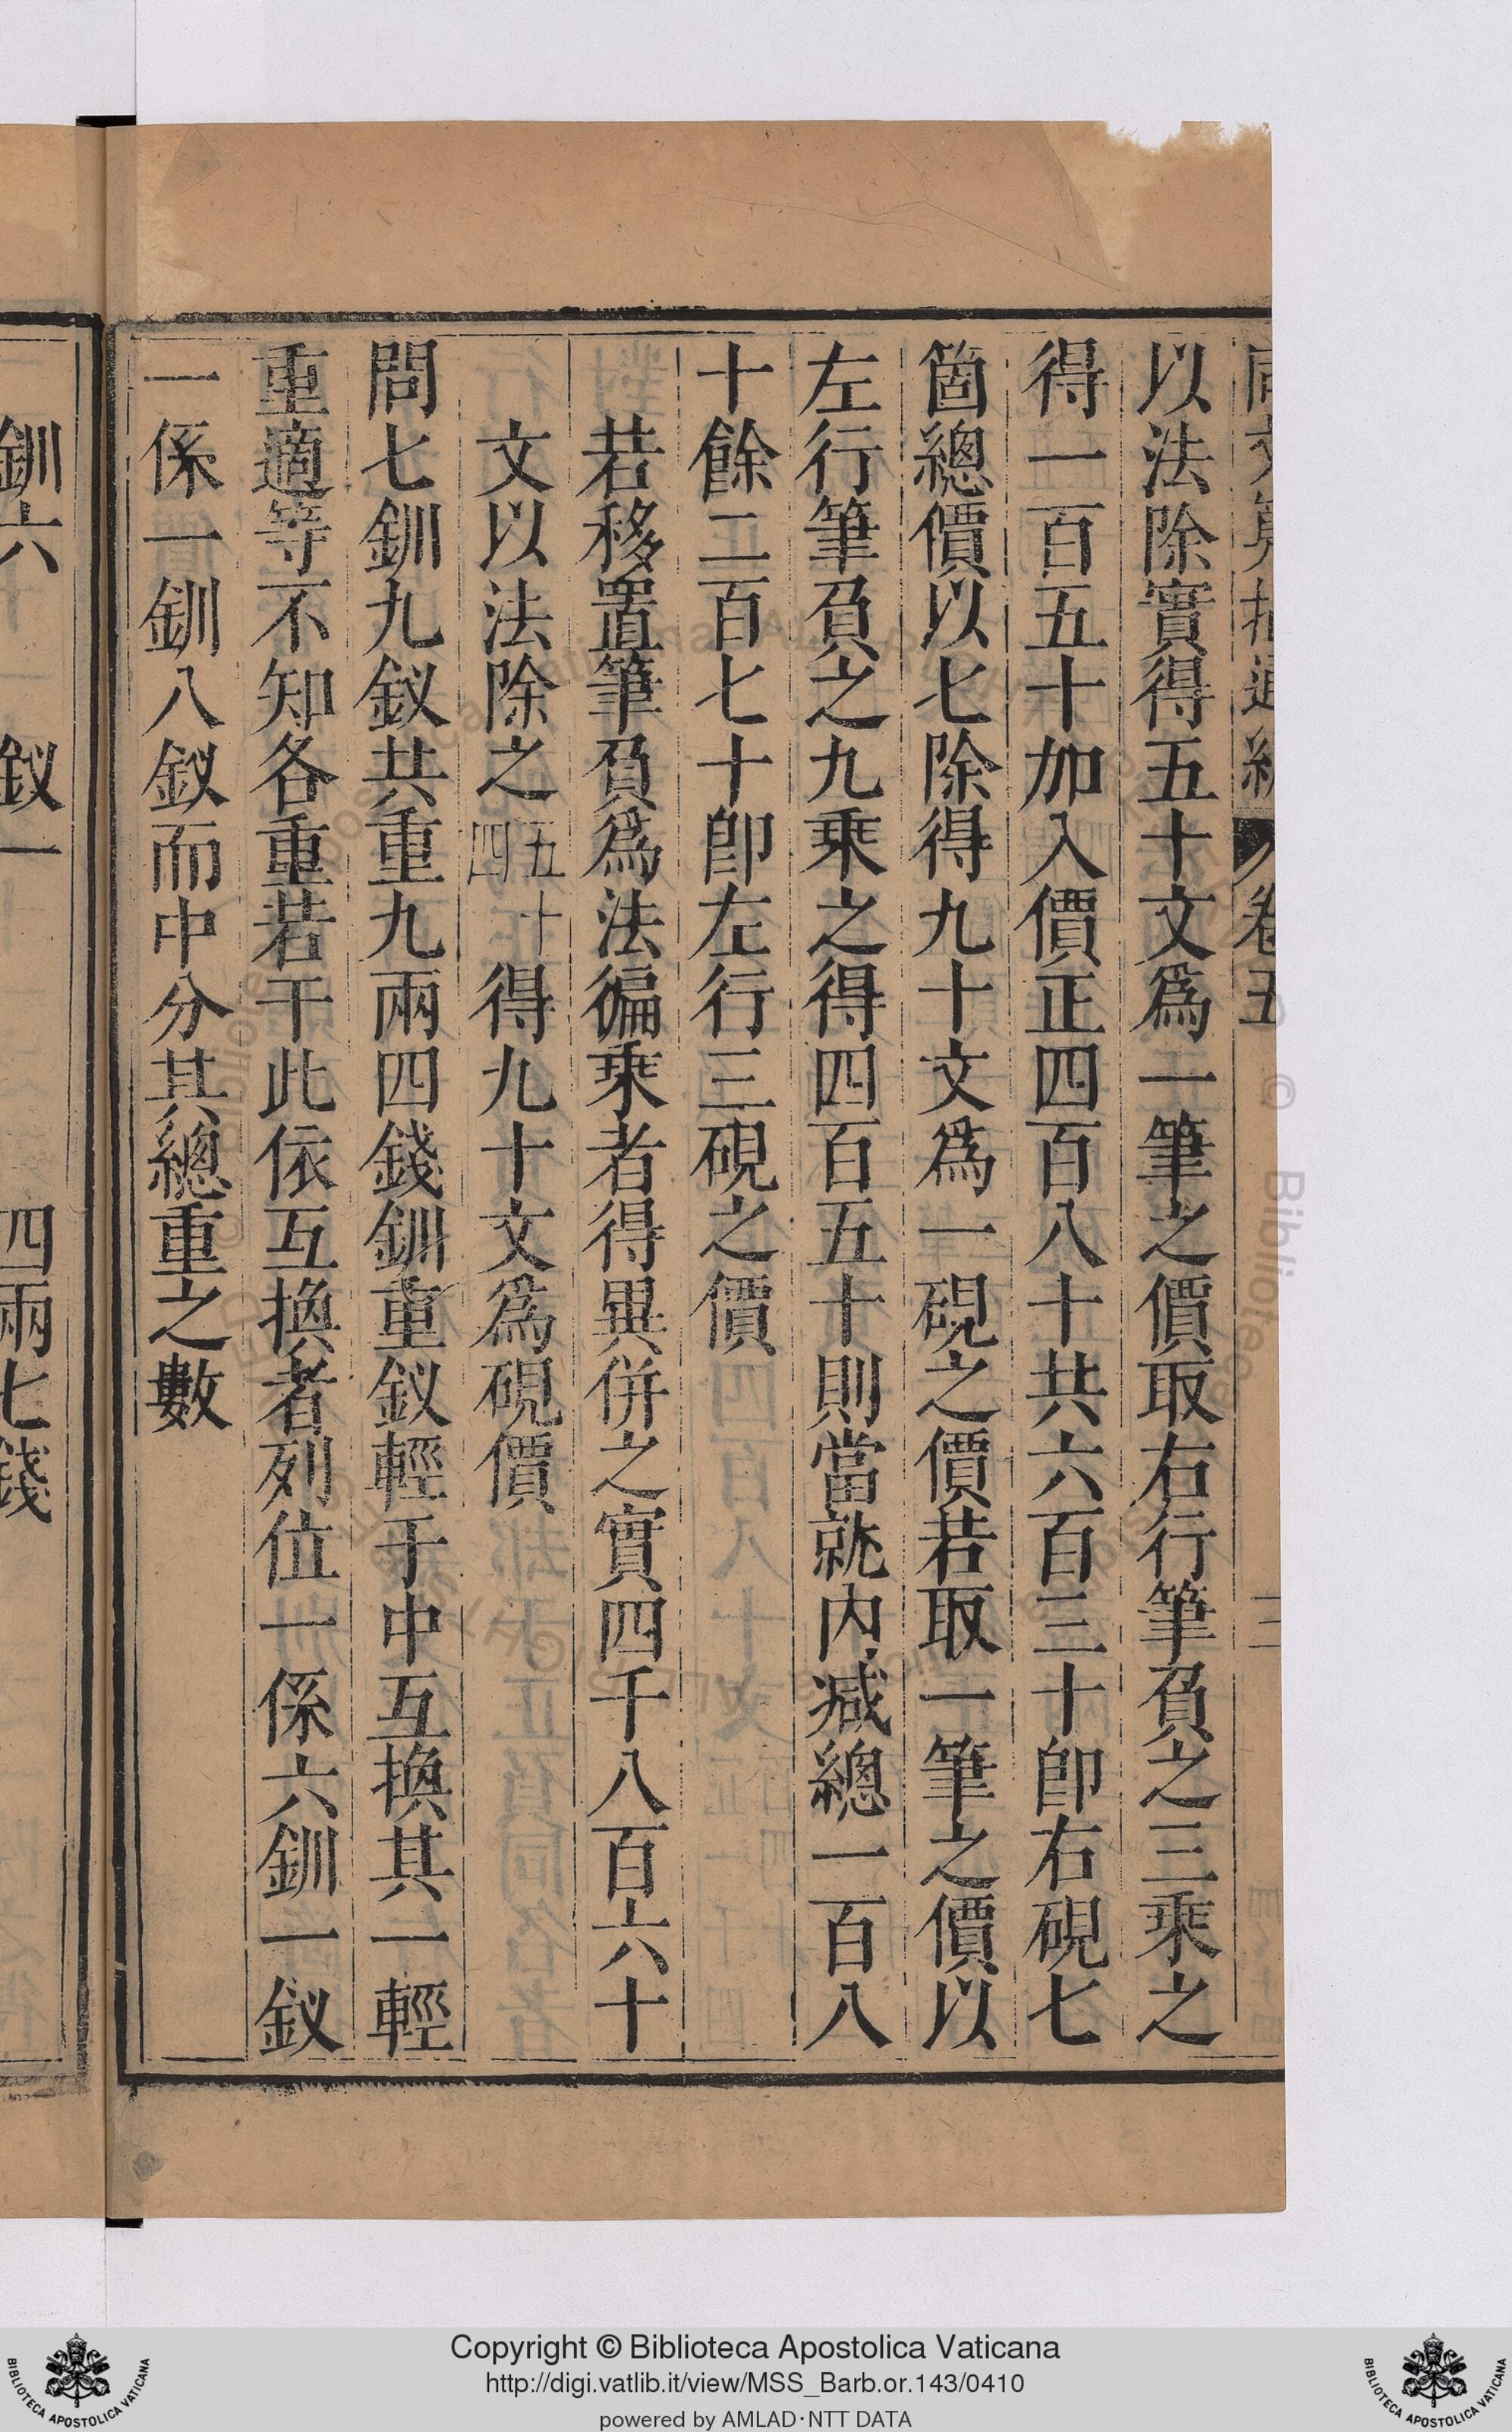 卷五
以法除實得五十文爲一筆之價取右行筆負之三乘之
得一百五十加入價正四百八十共六百三十卽右硯七
箇總價以七除得九十文爲一硯之價若取一筆之價以
左行筆負之九乘之得四百五十則當就內減總一百八
十餘二百七十卽左行三硯之價
若移置筆負爲法徧乘者得異併之實四千八百六十
文以法除之五十四得九十文爲硯價
問七釧九釵共重九兩四錢釧重釵輕于中互換其一輕
重適等不知各重若干此依互換者列位一係六釧一釵
一係一釧八釵而中分其總重之數
釧六 釵一 四兩七錢
Copyright © Biblioteca Apostolica Vaticana
http://digi.vatlib.it/view/MSS_Barb.or.143/0410
powered by AMLAD·NTT DATA
BIBLIOTECA APOSTOLICA VATICANA
BIBLIOTECA APOSTOLICA VATICANA